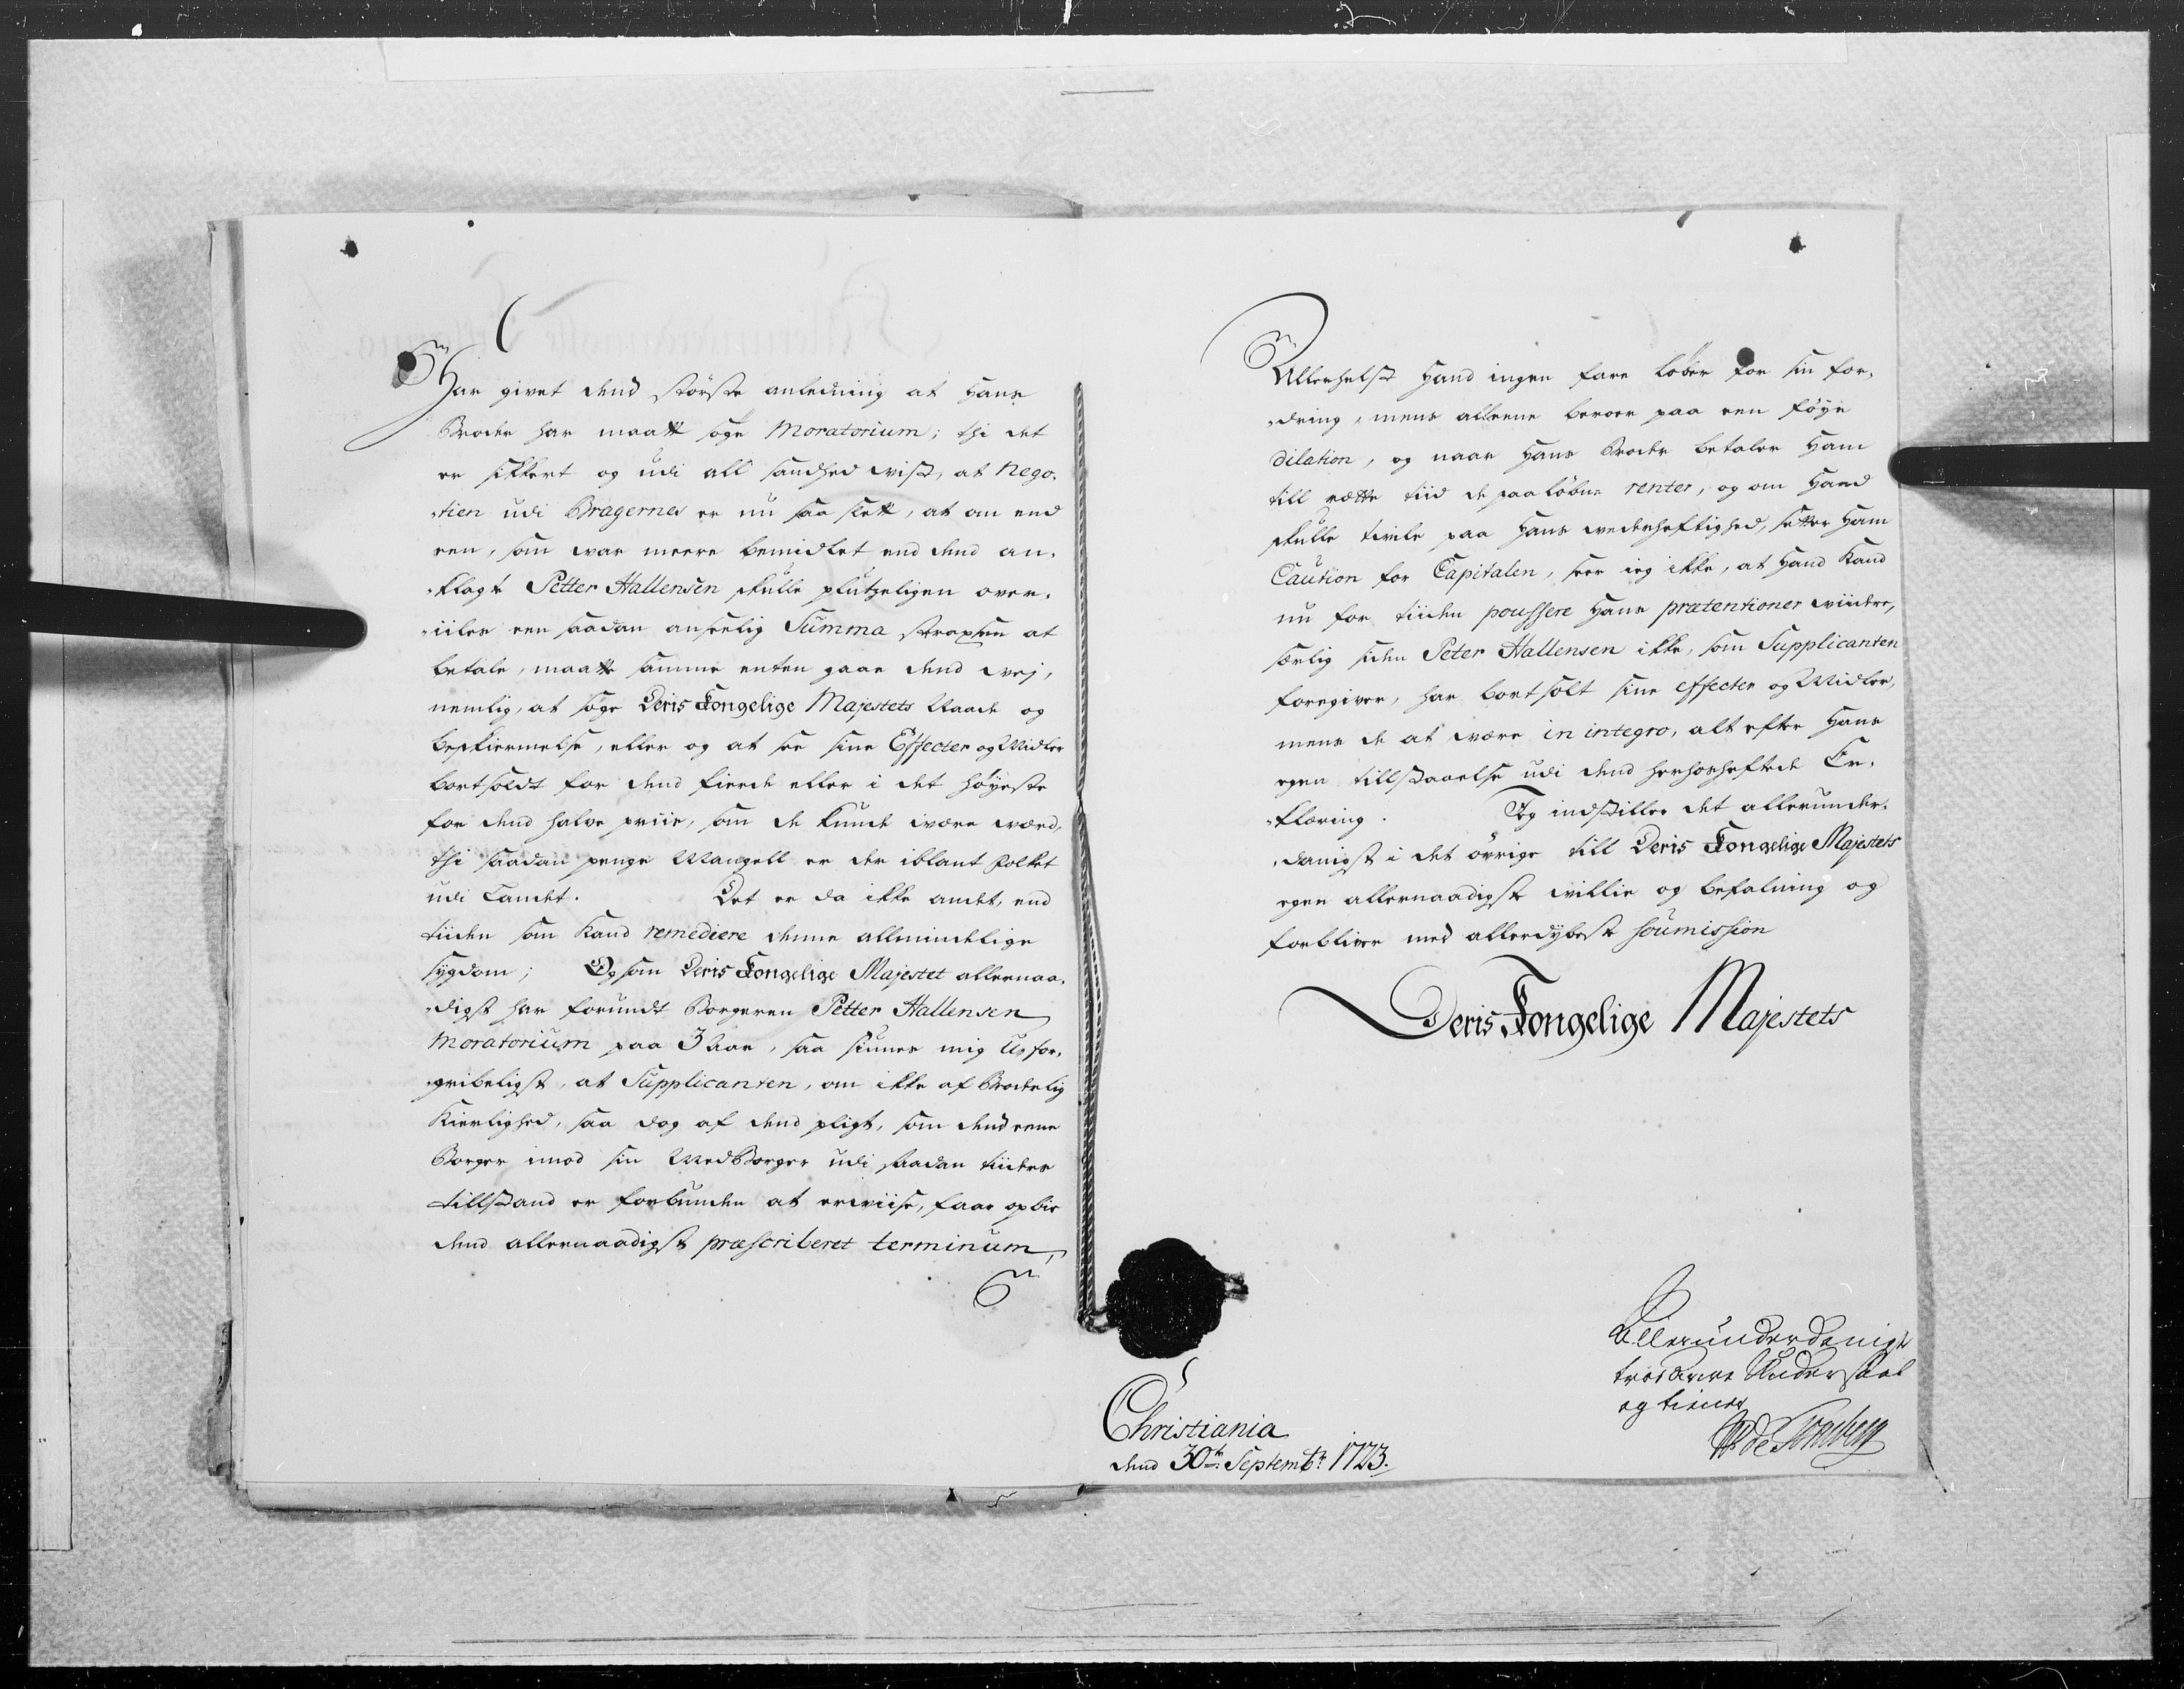 Har givet dend störste anledning at hans
Broder har maatt söge Moratorium; thi det
er sikkert og udi all sandhed vist, at Nego-
tien udi Bragernes er nu saa slett, at om end
een, som war meere bemidlet end dend an-
klagte Petter Hallensen skulle plutzeligen over-
iiles een saadan anseelig Summa strax at
betale, maatte samme enten gaae dend vej,
nemlig, at söge Deris Kongelige Majestets Naade og
beskiermelse, eller og at see sine Effecter og Midler
bortsoldt for dend fierde eller i det höyeste
for dend halve priis, som de kunde være værd,
thi saadan penge Mangell er der iblant folket
udi Landet. Det er da ikke andet, end
tiiden som kand remediere denne allmindelige
sygdom; Og som Deris Kongelige Majestet allernaa-
digst har forundt Borgeren Petter Hallensen
Moratorium paa 3 Aar, saa siunes mig Ufor-
gribeligst, at Supplicanten, om ikke af Broderlig
Kierlighed, saa dog af dend pligt, som dend eene
Borger imod sin Medborger udi saadan tiiders
tillstand er forbunden at erviise, faar opbie
dend allernaadigst præscriberet terminum,
Allerhelst hand ingen fare löber for sin for-
dring, mens alleene beroer paa een föye
dilation, og naar hans Broder betaler ham
till rætte tiid de paalöbne renter, og om hand
skulle tvile paa hans vederheftighed, setter ham
Caution for Capitalen, seer ieg ikke, at hand kand
nu for tiiden poussere hans prætentioner viidere,
særlig siden Peter Hallensen ikke, som Supplicanten
foregiver, har bortsolt sine effecter og Midler,
mens de at være in integro, alt efter hans
egen tillstaaelse udi dend herhosheftede Er-
klæring. Jeg indstiller det allerunder-
danigst i det övrige till Deris Kongelige Majestets
egen allernaadigste villie og befalning og
forbliver med allerdybeste soumission
Deris Kongelige Majestets
Christiania
dend 30te Septembr 1723.
Allerunderdanigste
troe Undersaat
og tiener